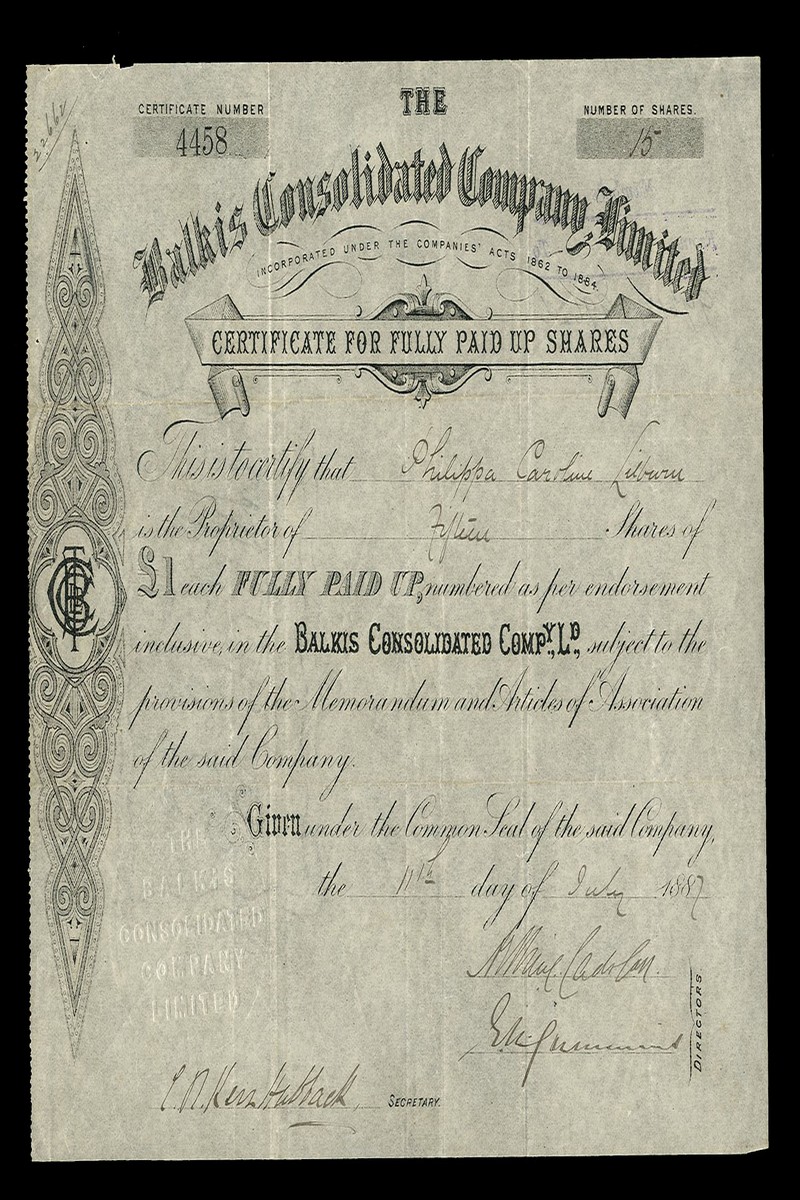 THE
CERTIFICATE NUMBER
4458
NUMBER OF SHARES.
15
Balkis Consolidated Company, Limited
INCORPORATED UNDER THE COMPANIES' ACTS 1862 TO 1884.
CERTIFICATE FOR FULLY PAID UP SHARES
This is to certify that Philippa Caroline Lilburn
is the Proprietor of Fifteen Shares of
£1 each FULLY PAID UP, numbered as per endorsement
inclusive, in the BALKIS CONSOLIDATED COMPY., LD., subject to the
provisions of the Memorandum and Articles of Association
of the said Company.
Given under the Common Seal of the said Company,
the 11th day of July 1887
THE
BALKIS
CONSOLIDATED
COMPANY
LIMITED
DIRECTORS.
SECRETARY.